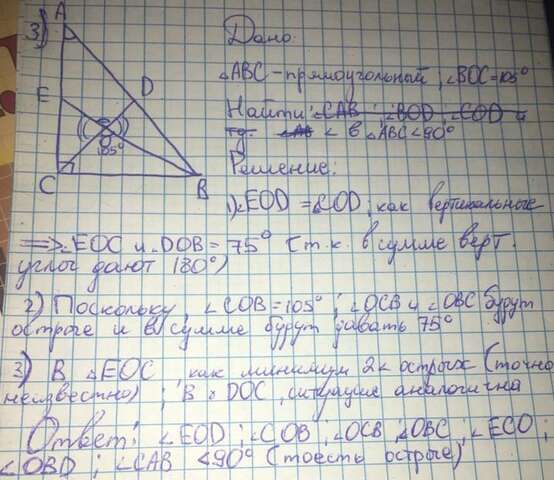 3)
A
E
D
O
105°
C
B
Дано:
△ABC - прямоугольный, ∠BOC=105°
Найти: ∠CAB ; ∠BOD ; ∠COD и
∠ в △ABC<90°
Решение:
1) ∠EOD = ∠COD, как вертикальные
=> ∠EOC и ∠DOB = 75° (т.к. в сумме верт.
углы дают 180°)
2) Поскольку, ∠COB=105° ; ∠OCB и ∠OBC будут
острые и в сумме будут давать 75°
3) В △EOC, как минимум 2∠ острых (точно
неизвестно), в DOC, ситуация аналогична
Ответ: ∠EOD ; ∠COB ; ∠OCB ; ∠OBC ; ∠ECO ;
∠OBD ; ∠CAB <90° (тоесть острые)